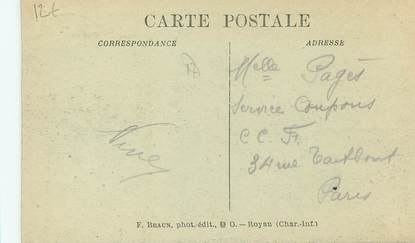 12€
CARTE POSTALE
CORRESPONDANCE
ADRESSE
Melle Pagès
Service Coupons
C C F.
34 rue Taitbout
Paris
F. BRAUN, phot.-édit., O. — Royan (Char.-Inf.)